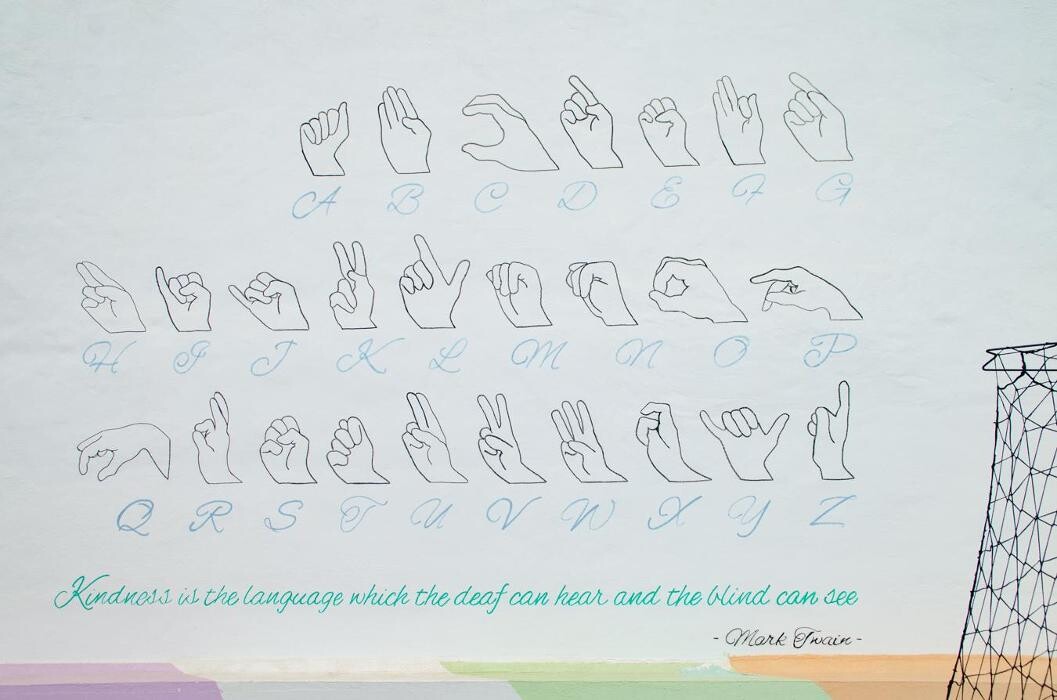 A B C D E F G
H I J K L M N O P
Q R S T U V W X Y Z
Kindness is the language which the deaf can hear and the blind can see
- Mark Twain -